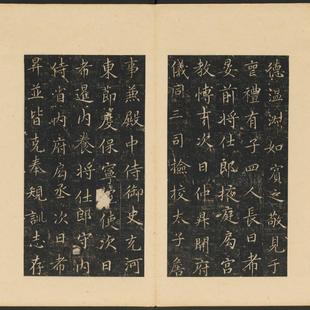 德溫淑如賓之敬見于
禮有子四人長曰希
晏前將仕郎掖庭局宮
教博士次曰仲昇開府
儀同三司撿挍太子詹
事兼殿中侍御史充河
東節度保寧使次曰
希暹內養將仕郎守內
侍省內府局丞次曰希
昇並皆克奉規訓志存